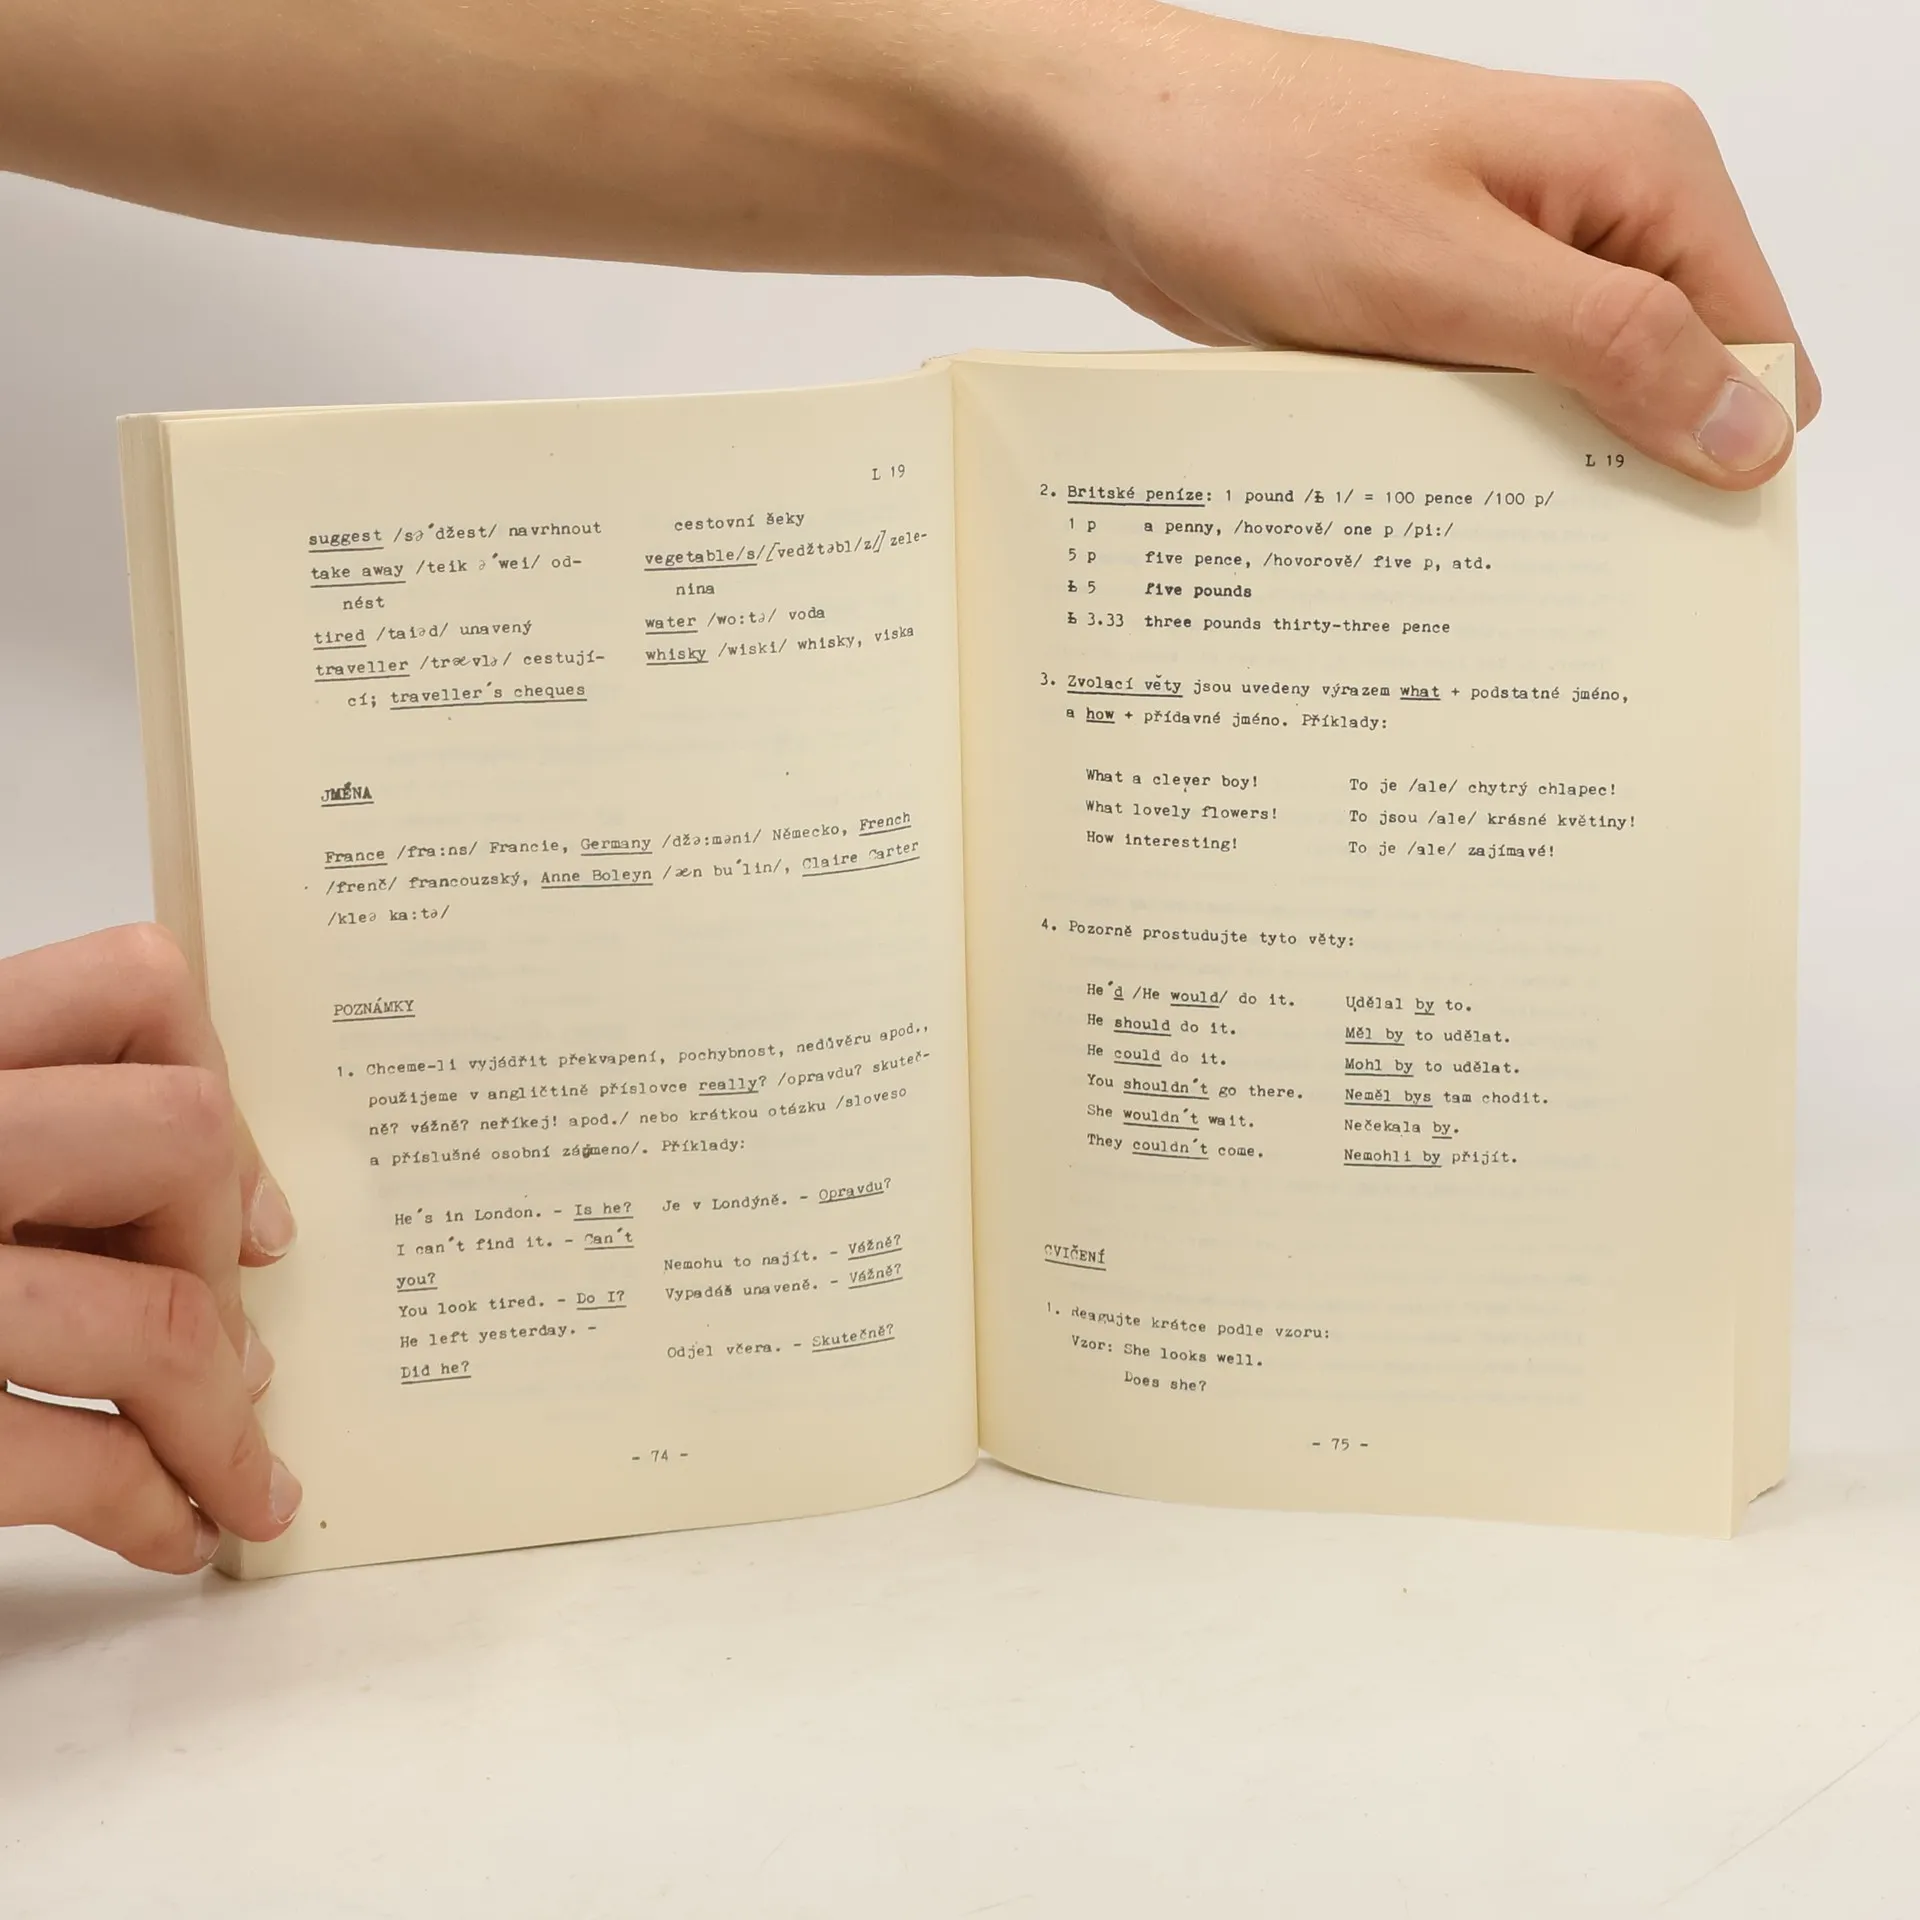 L 19
suggest /sə´džest/ navrhnout
take away /teik ə´wei/ od-
nést
tired /taiəd/ unavený
traveller /trævlə/ cestují-
cí; traveller´s cheques
cestovní šeky
vegetable/s/ /[vedžtəbl/z/] zele-
nina
water /wo:tə/ voda
whisky /wiski/ whisky, viska
JMÉNA
France /fra:ns/ Francie, Germany /džə:məni/ Německo, French
/frenč/ francouzský, Anne Boleyn /æn bu´lin/, Claire Carter
/kleə ka:tə/
POZNÁMKY
1. Chceme-li vyjádřit překvapení, pochybnost, nedůvěru apod.,
použijeme v angličtině příslovce really? /opravdu? skuteč-
ně? vážně? neříkej! apod./ nebo krátkou otázku /sloveso
a příslušné osobní zájmeno/. Příklady:
He´s in London. - Is he? Je v Londýně. - Opravdu?
I can´t find it. - Can´t
you? Nemohu to najít. - Vážně?
You look tired. - Do I? Vypadáš unaveně. - Vážně?
He left yesterday. -
Did he? Odjel včera. - Skutečně?
- 74 -
L 19
2. Britské peníze: 1 pound /£ 1/ = 100 pence /100 p/
1 p a penny, /hovorově/ one p /pi:/
5 p five pence, /hovorově/ five p, atd.
£ 5 five pounds
£ 3.33 three pounds thirty-three pence
3. Zvolací věty jsou uvedeny výrazem what + podstatné jméno,
a how + přídavné jméno. Příklady:
What a clever boy! To je /ale/ chytrý chlapec!
What lovely flowers! To jsou /ale/ krásné květiny!
How interesting! To je /ale/ zajímavé!
4. Pozorně prostudujte tyto věty:
He´d /He would/ do it. Udělal by to.
He should do it. Měl by to udělat.
He could do it. Mohl by to udělat.
You shouldn´t go there. Neměl bys tam chodit.
She wouldn´t wait. Nečekala by.
They couldn´t come. Nemohli by přijít.
CVIČENÍ
1. Reagujte krátce podle vzoru:
Vzor: She looks well.
Does she?
- 75 -